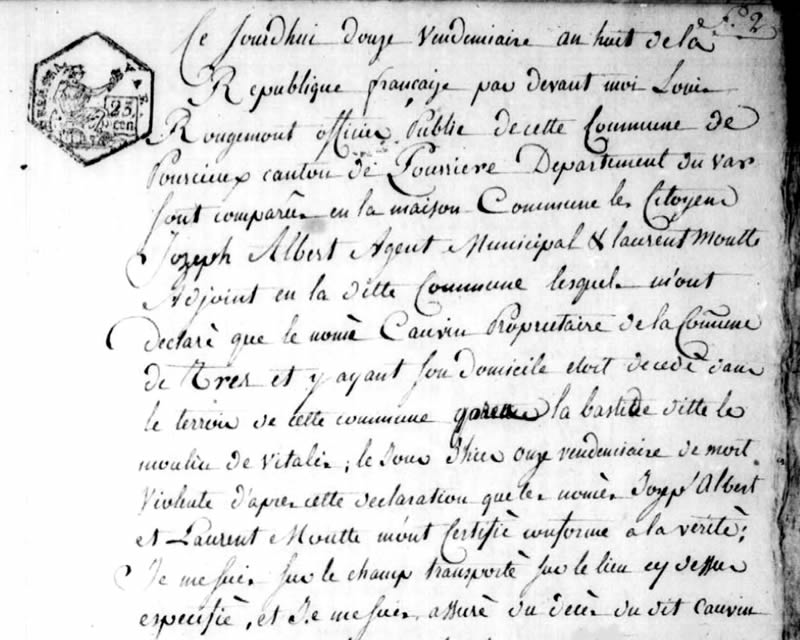 f.° 2
Ce jourdhui douze Vendemiaire an huit de la
Republique françaize par devant moi Louis
Rougemont officier Public de cette Commune de
Pourcieux canton de Pourriere Departement du var
sont comparès en la maison Commune les Citoyens
Jozeph Albert Agent Municipal & laurent Moutte
Adjoint en la ditte Commune lesquels m'ont
declarè que le nomè Cauvin Proprietaire de la Comune
de Tres et y ayant son domicile etoit decedè dans
le terroir de cette commune la bastide ditte le
moulin de vitalis ; le Jour d'hier onze vendemiaire de mort
Violente d'apres cette declaration que les nomès Jozeph Albert
et Laurent Moutte m'ont Certifiè conforme a la veritè ;
Je me suis sur le champ transportè sur le lieu cy dessus
especifiè, et Je me suis assurè du decès du dit Cauvin
25
cen